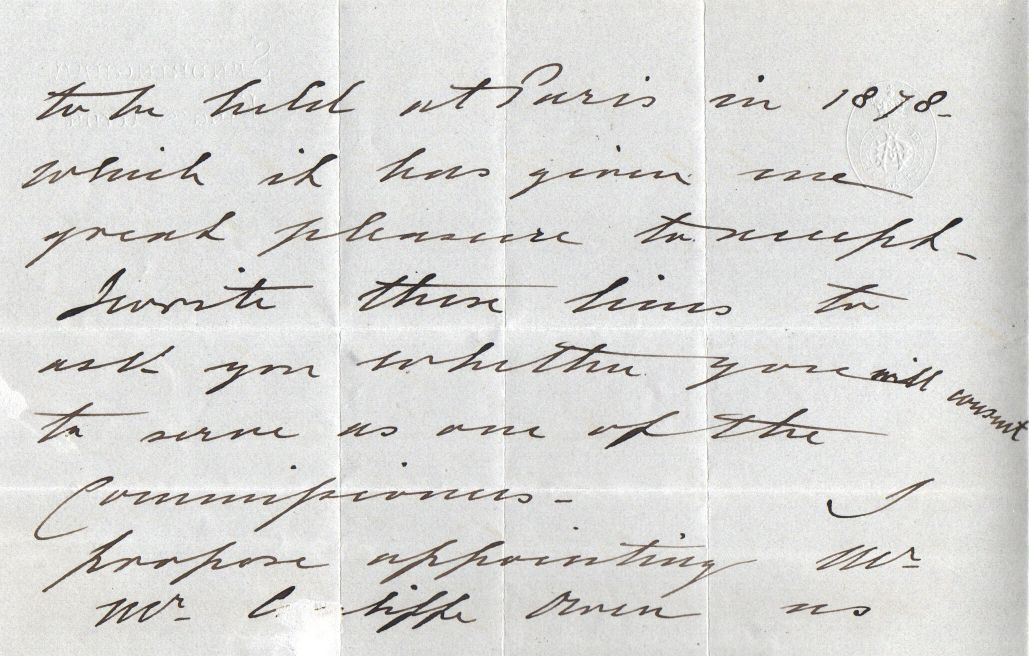 to be held at Paris in 1878-
which it has given me
great pleasure to accept-
I write these lines to
ask you whether you will consent
to serve as one of the
Commissioners- I
propose appointing Mr
Mr Cunliffe Owen as